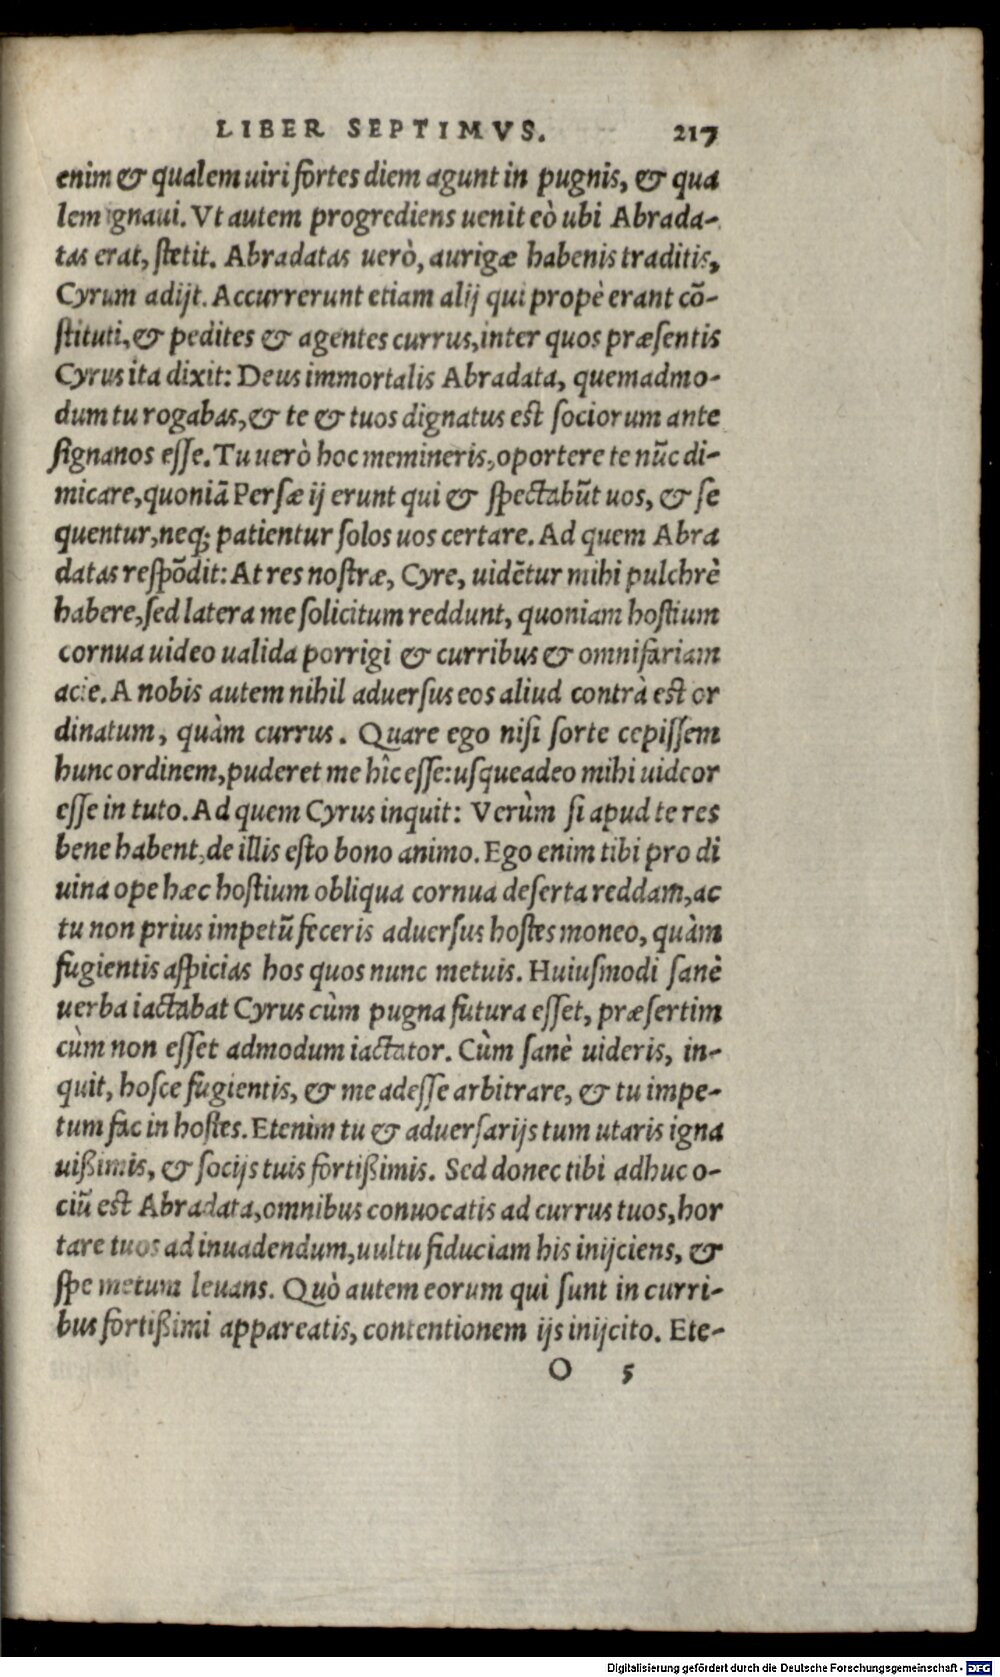 LIBER SEPTIMVS. 217
enim & qualem uiri fortes diem agunt in pugnis, & qua
lem ignaui. Vt autem progrediens uenit eò ubi Abrada-
tas erat, stetit. Abradatas uerò, aurigæ habenis traditis,
Cyrum adijt. Accurrerunt etiam alij qui propè erant cō-
stituti, & pedites & agentes currus, inter quos præsentis
Cyrus ita dixit: Deus immortalis Abradata, quemadmo-
dum tu rogabas, & te & tuos dignatus est sociorum ante
signanos esse. Tu uerò hoc memineris, oportere te nūc di-
micare, quoniā Persæ ij erunt qui & spectabūt uos, & se
quentur, neq; patientur solos uos certare. Ad quem Abra
datas respōdit: At res nostræ, Cyre, uidētur mihi pulchrè
habere, sed latera me solicitum reddunt, quoniam hostium
cornua uideo ualida porrigi & curribus & omnifariam
acie. A nobis autem nihil aduersus eos aliud contrà est or
dinatum, quàm currus. Quare ego nisi sorte cepissem
hunc ordinem, puderet me hîc esse: usqueadeo mihi uideor
esse in tuto. Ad quem Cyrus inquit: Verùm si apud te res
bene habent, de illis esto bono animo. Ego enim tibi pro di
uina ope hæc hostium obliqua cornua deserta reddam, ac
tu non prius impetū feceris aduersus hostes moneo, quàm
fugientis aspicias hos quos nunc metuis. Huiusmodi sanè
uerba iactabat Cyrus cùm pugna futura esset, præsertim
cùm non esset admodum iactator. Cùm sanè uideris, in-
quit, hosce fugientis, & me adesse arbitrare, & tu impe-
tum fac in hostes. Etenim tu & aduersarijs tum utaris igna
uißimis, & socijs tuis fortißimis. Sed donec tibi adhuc o-
ciū est Abradata, omnibus conuocatis ad currus tuos, hor
tare tuos ad inuadendum, uultu fiduciam his inijciens, &
spe metum leuans. Quò autem eorum qui sunt in curri-
bus fortißimi appareatis, contentionem ijs inijcito. Ete-
O 5
Digitalisierung gefördert durch die Deutsche Forschungsgemeinschaft - DFG